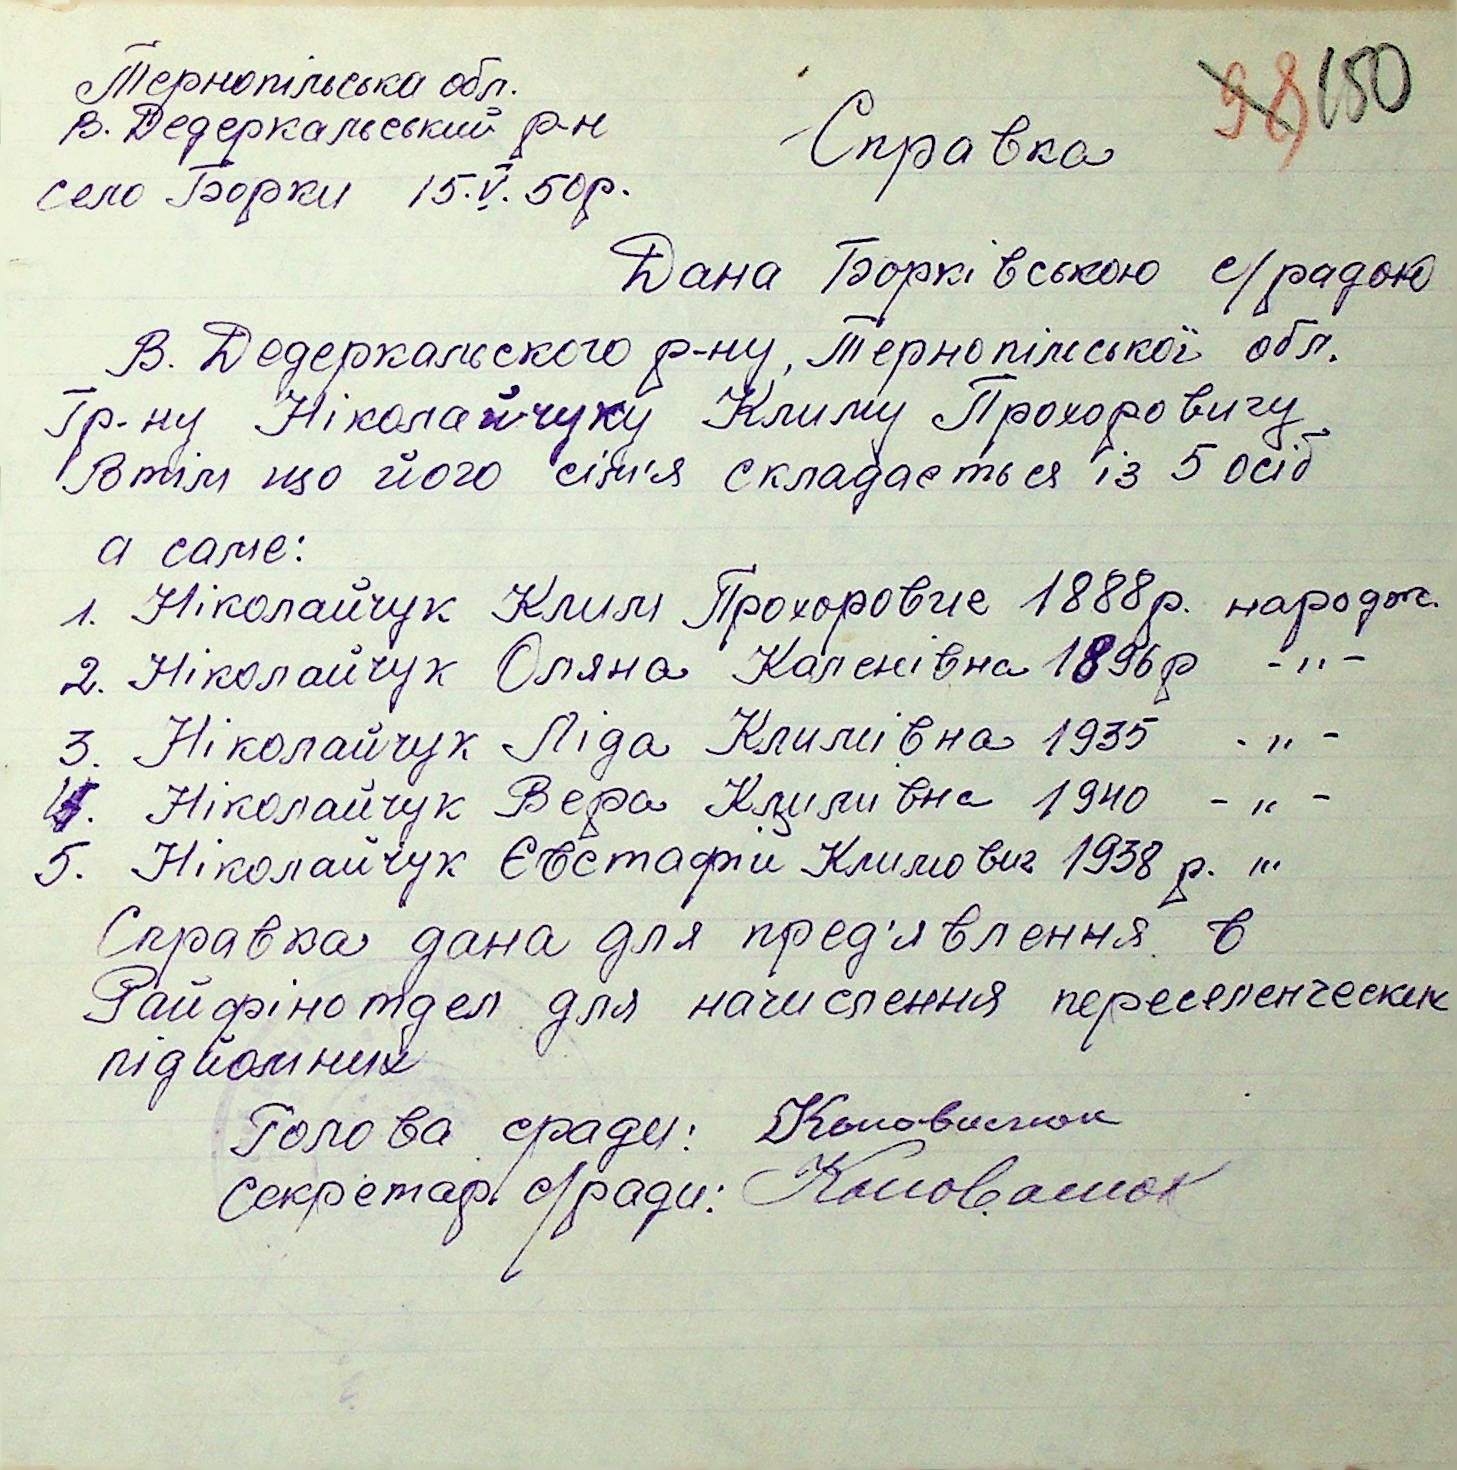 98 150
Тернопільська обл.
В. Дедеркальський р-н
село Борки 15.V.50р.
Справка
Дана Борківською с/радою
В. Дедеркальского р-ну, Тернопільської обл.
Гр-ну Ніколайчуку Климу Прохоровичу
Втім що його сім'я складається із 5 осіб
а саме:
1. Ніколайчук Клим Прохорович 1888р. народж.
2. Ніколайчук Оляна Каленівна 1896р -"-
3. Ніколайчук Ліда Климівна 1935 -"-
4. Ніколайчук Вера Климівна 1940 -"-
5. Ніколайчук Євстафій Климович 1938 р. "
Справка дана для пред'явлення в
Райфінотдел для начислення переселенческих
підйомних
Голова сради:
Секретар с/ради: